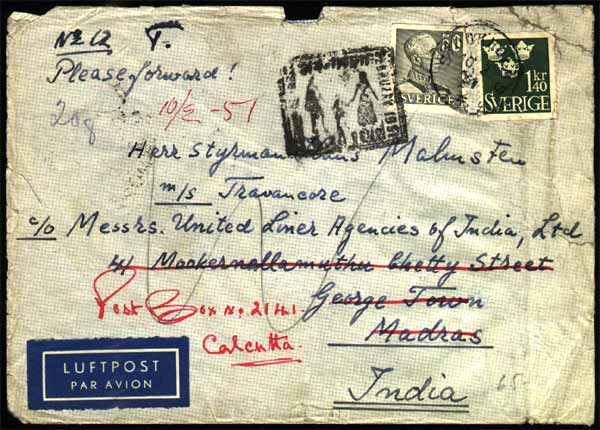 No 12 T.
Please forward!
20g
10/2 -51
50
SVERIGE
1 kr
1 40
SVERIGE
1951
Herr Styrman Malmsten
m/s Travancore
c/o Messrs. United Liner Agencies of India, Ltd
41 Mookernallamuthu Chetty Street
Post Box No. 2141 George Town
Calcutta. Madras
India
65
LUFTPOST
PAR AVION